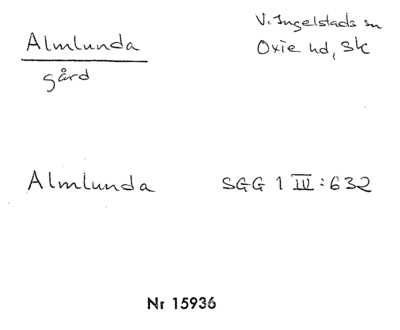 Almlunda
gård
V. Ingelstads sn
Oxie hd, Sk
Almlunda SGG 1 III:632
Nr 15936